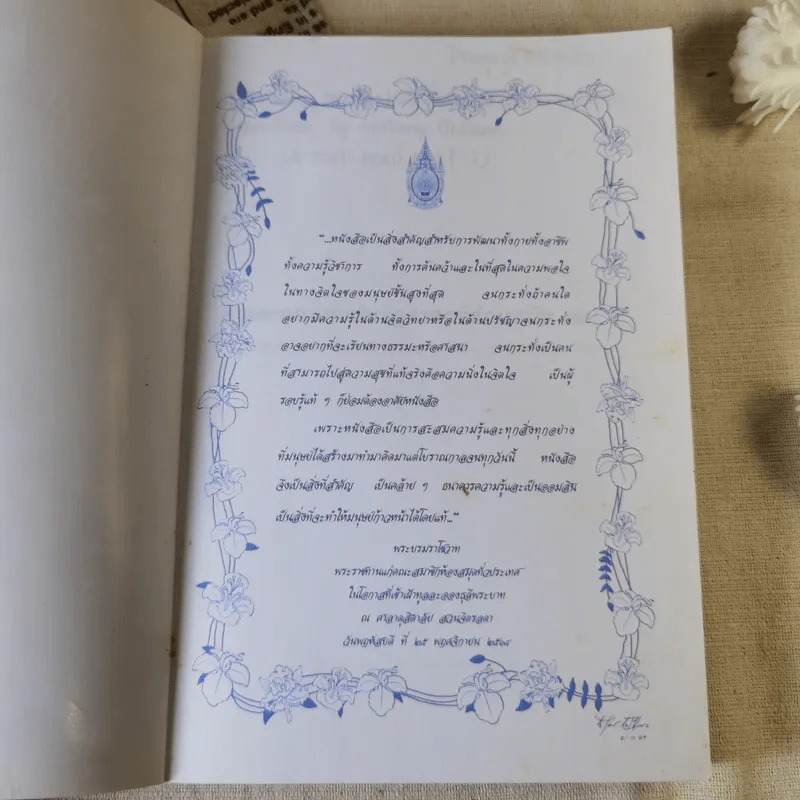 "...หนังสือเป็นสิ่งสำคัญสำหรับการพัฒนาทั้งกายทั้งอาชีพ
ทั้งความรู้วิชาการ ทั้งการค้นคว้าและในที่สุดในความพอใจ
ในทางจิตใจของมนุษย์ขั้นสูงที่สุด จนกระทั่งถ้าคนใด
อยากมีความรู้ในด้านจิตวิทยาหรือในด้านปรัชญาจนกระทั่ง
อาจอยากที่จะเรียนทางธรรมะหรือศาสนา จนกระทั่งเป็นคน
ที่สามารถไปสู่ความสุขที่แท้จริงคือความนิ่งในจิตใจ เป็นผู้
รอบรู้แท้ ๆ ก็ย่อมต้องอาศัยหนังสือ
เพราะหนังสือเป็นการสะสมความรู้และทุกสิ่งทุกอย่าง
ที่มนุษย์ได้สร้างมาทำมาคิดมาแต่โบราณกาลจนทุกวันนี้ หนังสือ
จึงเป็นสิ่งที่สำคัญ เป็นคล้าย ๆ ธนาคารความรู้และเป็นออมสิน
เป็นสิ่งที่จะทำให้มนุษย์ก้าวหน้าได้โดยแท้..."
พระบรมราโชวาท
พระราชทานแก่คณะสมาชิกห้องสมุดทั่วประเทศ
ในโอกาสที่เข้าเฝ้าทูลละอองธุลีพระบาท
ณ ศาลาดุสิดาลัย สวนจิตรลดา
วันพฤหัสบดี ที่ ๒๕ พฤศจิกายน ๒๕๑๔